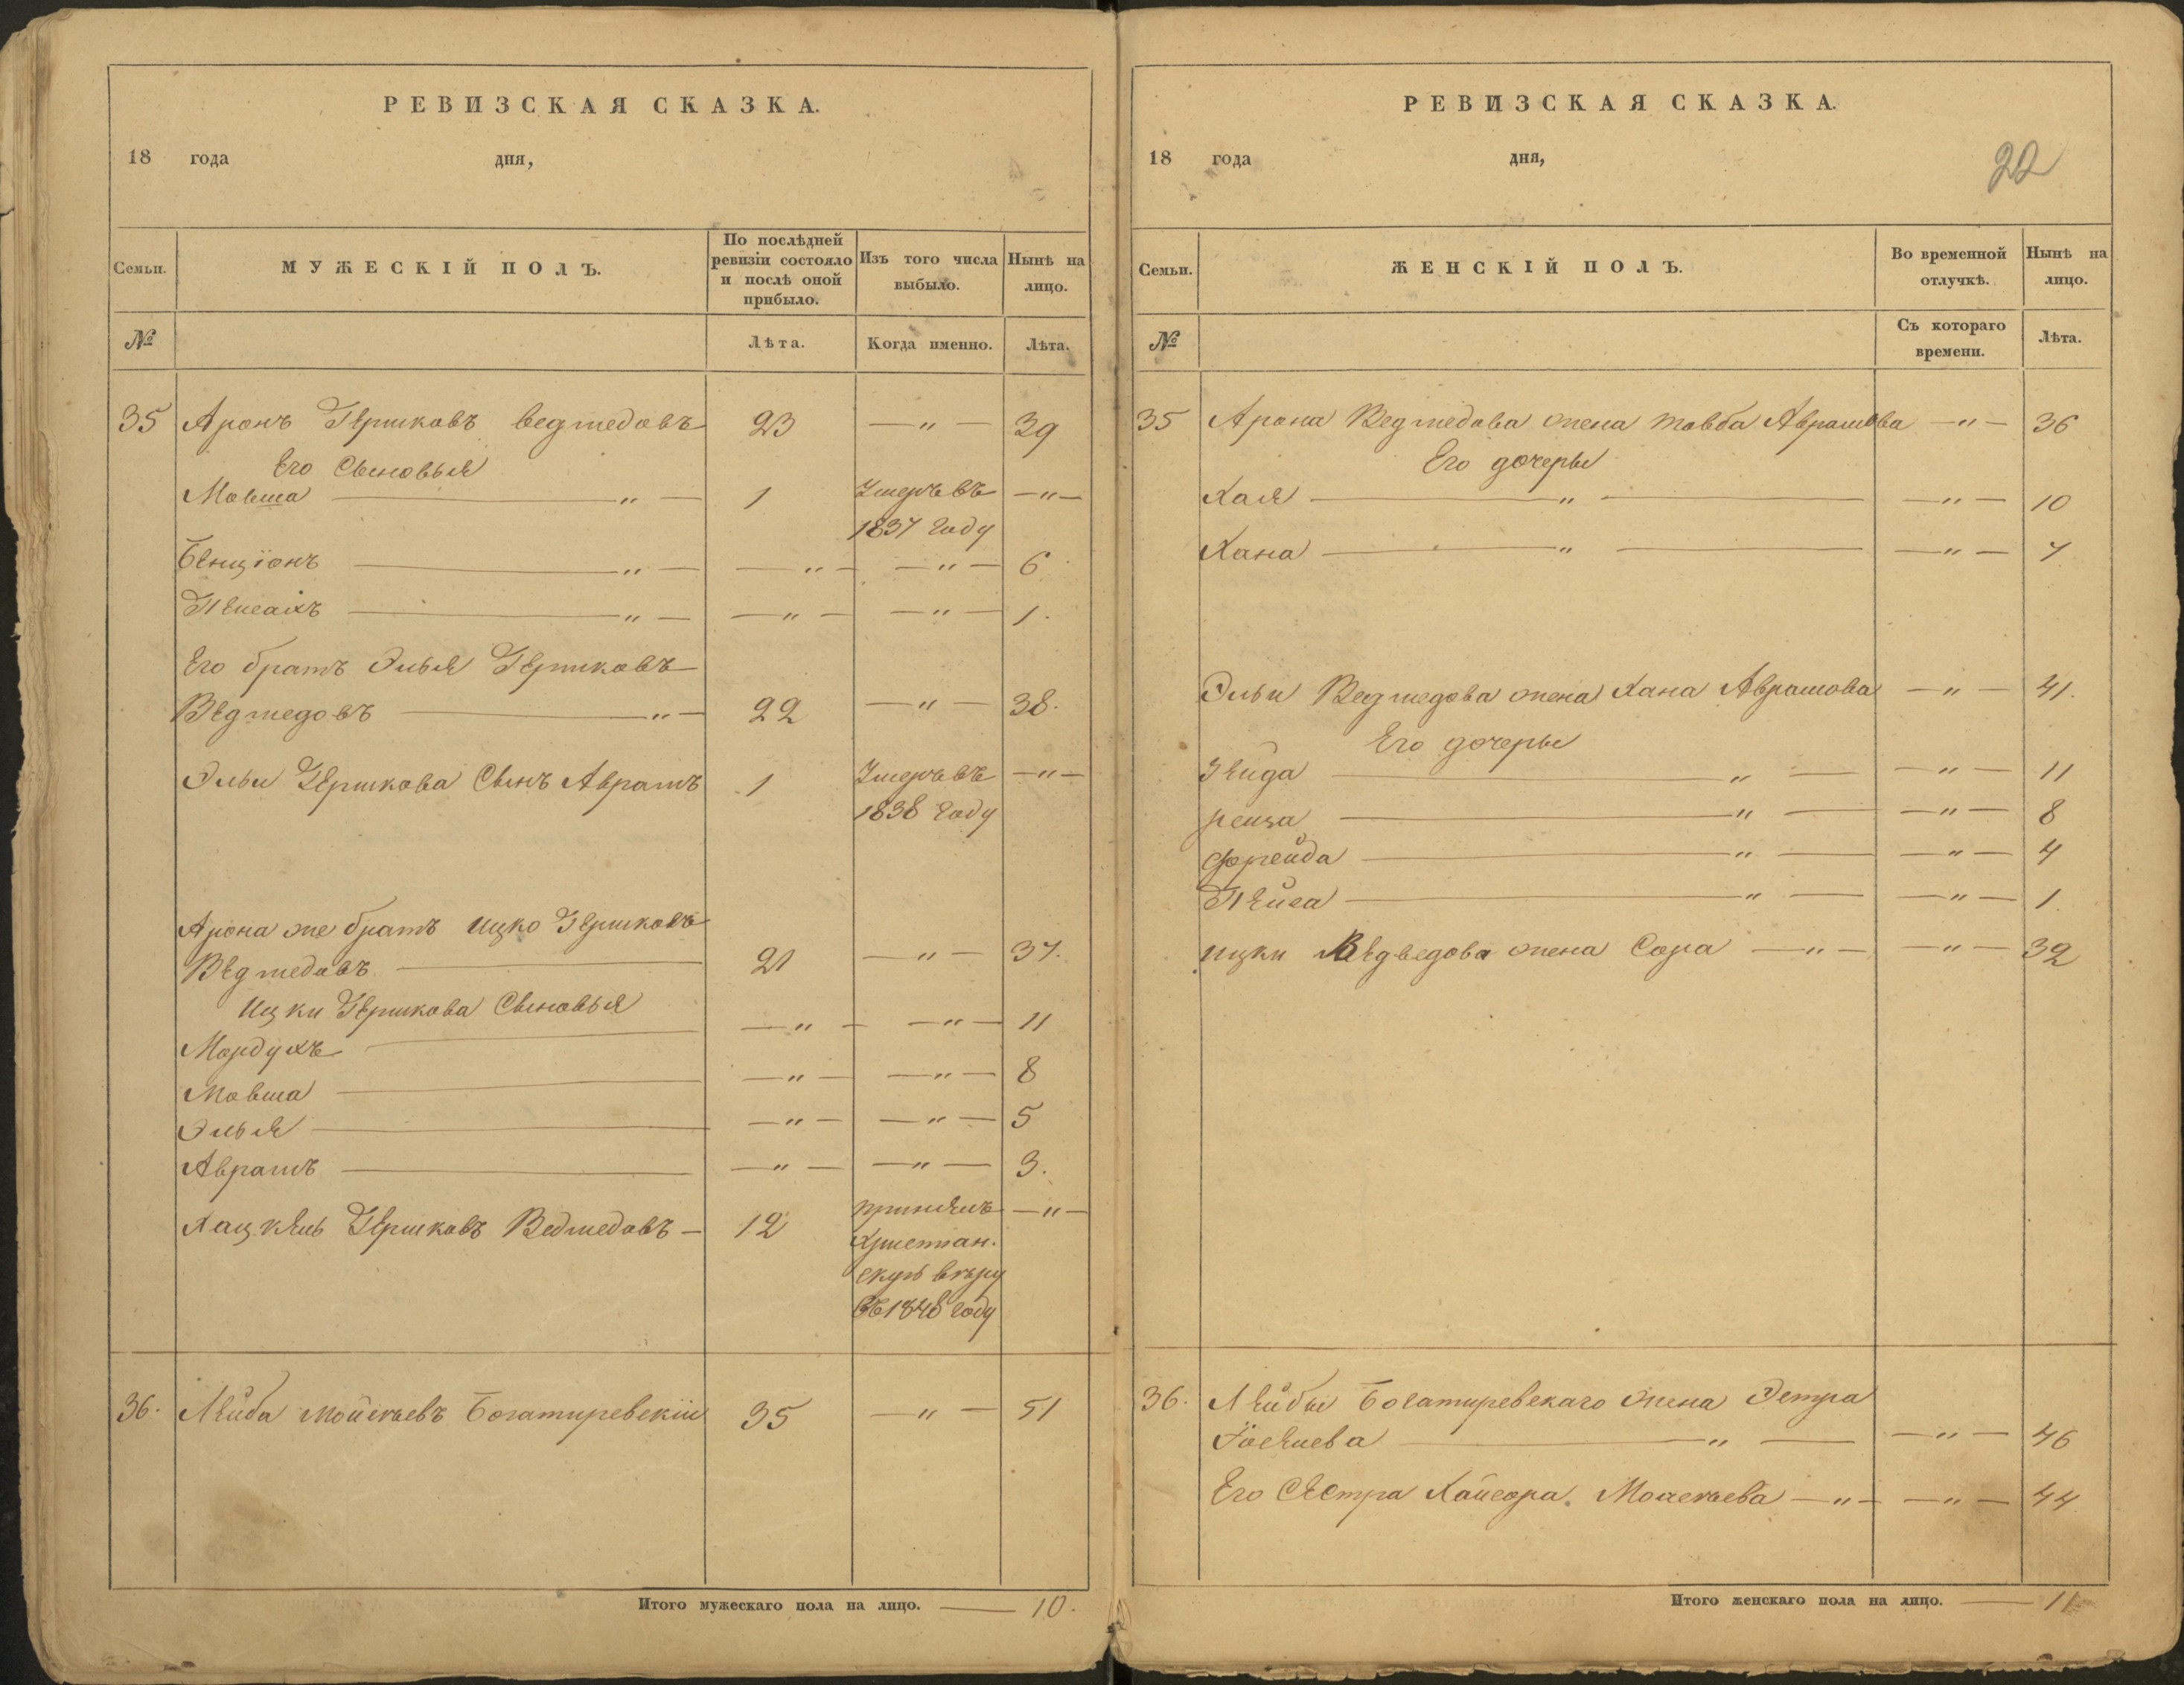 РЕВИЗСКАЯ СКАЗКА.
18 года дня,
Семьи. МУЖЕСКІЙ ПОЛЪ. По послѣдней ревизіи состояло и послѣ оной прибыло. Изъ того числа выбыло. Нынѣ на лицо.
№ Лѣта. Когда именно. Лѣта.
35 Аронъ Гершковъ Ведмедовъ 23 —"— 39
Его Сыновья
Мовша —"— 1 Умеръ въ —"—
1837 году
Бенціонъ —"— —"— —"— 6
Пейсахъ —"— —"— —"— 1.
Его братъ Элья Гершковъ
Ведмедовъ —"— 22 —"— 38.
Эльи Гершкова Сынъ Аврамъ 1 Умеръ въ —"—
1838 году
Арона же братъ Ицко Гершковъ
Ведмедовъ — 21 —"— 37.
Ицки Гершкова Сыновья
Мордухъ — —"— —"— 11
Мовша — —"— —"— 8
Элья — —"— —"— 5
Аврамъ — —"— —"— 3.
Хацкель Гершковъ Ведмедовъ — 12 принялъ —"—
Христіан.
скую вѣру
въ 1848 году
36. Лейба Мойсѣевъ Богатиревскій 35 —"— 51
Итого мужескаго пола на лицо. — 10.
РЕВИЗСКАЯ СКАЗКА.
18 года дня,
22
Семьи. ЖЕНСКІЙ ПОЛЪ. Во временной отлучкѣ. Нынѣ на лицо.
№ Съ котораго времени. Лѣта.
35 Арона Ведмедова жена Товба Аврамова —"— 36
Его дочеры
Хая —"— —"— 10
Хана —"— —"— 7
Эльи Ведмедова жена Хана Аврамова —"— 41.
Его дочеры
Зейда —"— —"— 11
Рейза —"— —"— 8
Фрейда —"— —"— 4
Пейса —"— —"— 1.
Ицки Ведведова жена Сора —"— —"— 32
36. Лейбы Богатиревскаго жена Эстра
Іосѣлева —"— —"— 46
Его Сестра Хайсора Мойсѣева —"— —"— 44
Итого женскаго пола на лицо. — 11